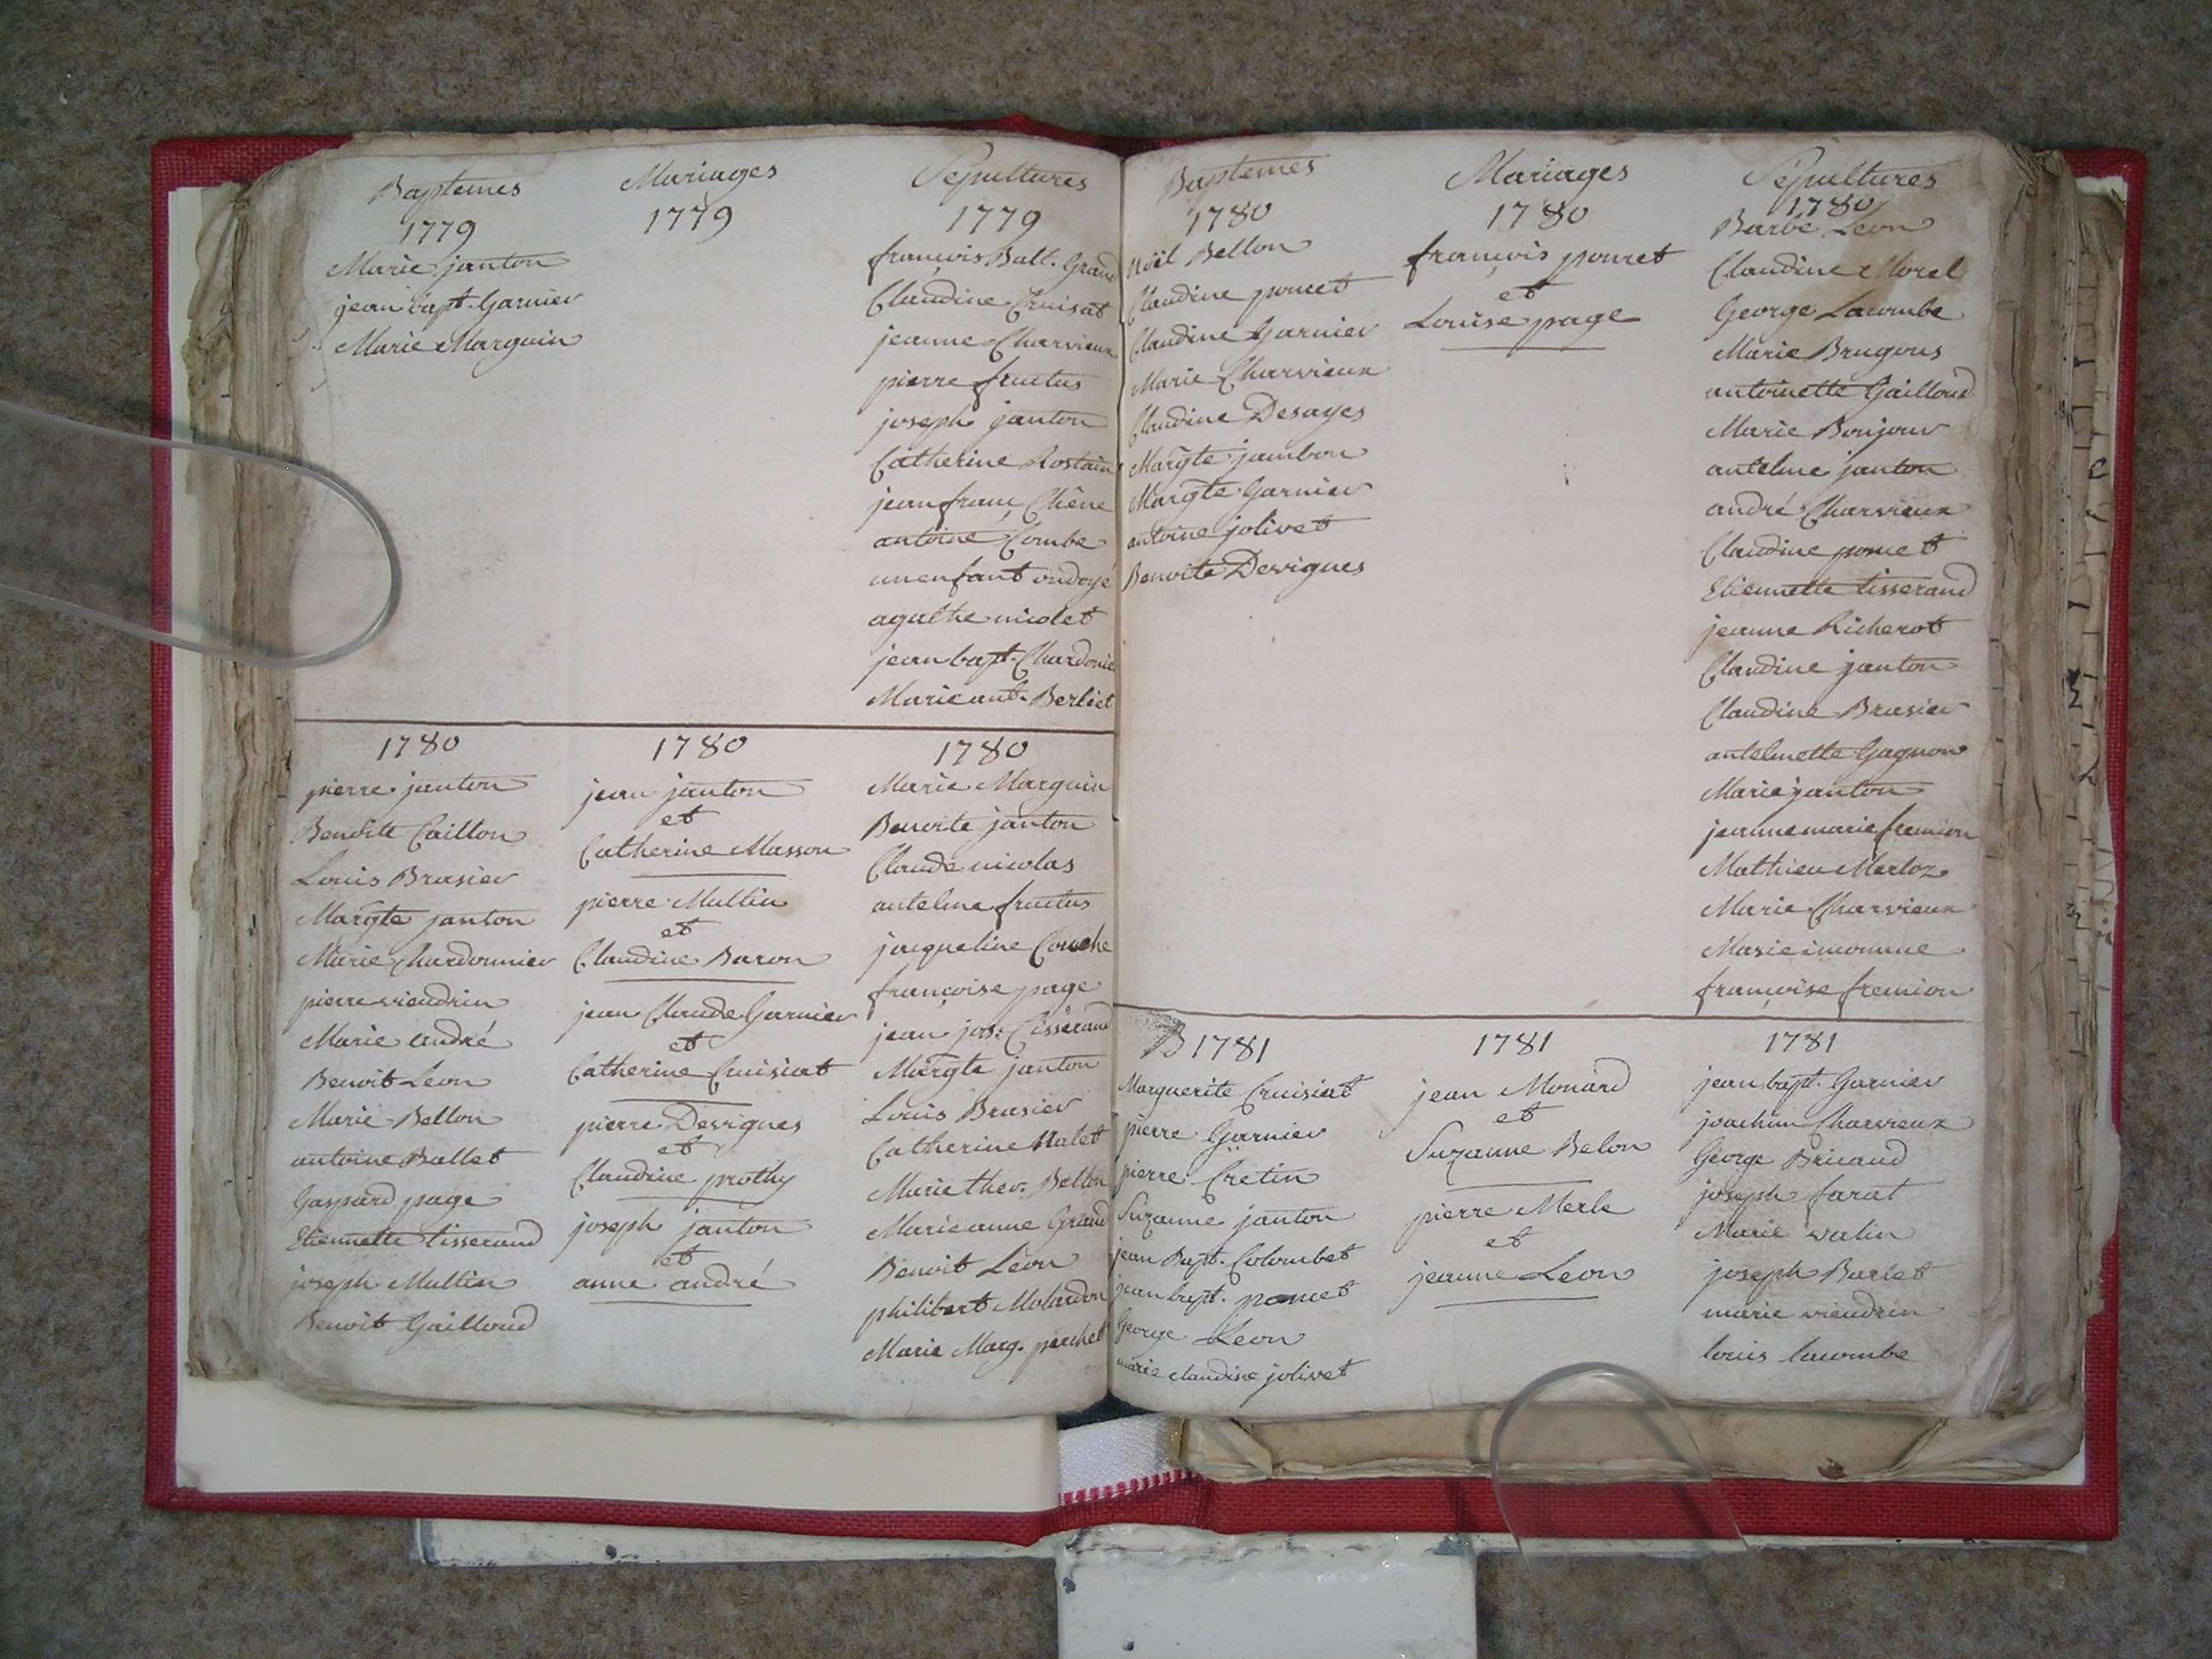 Baptemes
1779
Marie janton
jean bapt. Garnier
Marie Marguin
Mariages
1779
Sepultures
1779
françois Balt. Grand
Claudine Cruisat
jeanne Charvieux
pierre fructus
joseph janton
Catherine Rostain
jean franç Chêne
antoine Combe
un enfant ondoyé
agathe nicolet
jean bapt. Chardonie
Marie ant. Berliet
1780
pierre janton
Benoite Caillon
Louis Brasier
Margte janton
Marie Chardonnier
pierre vieudrin
Marie andré
Benoit Leon
Marie Bellon
antoine Ballet
Gaspard page
Etiennette tisserand
joseph Multin
Benoit Gailloud
1780
jean janton
et
Catherine Masson
pierre Multin
et
Claudine Baron
jean Claude Garnier
et
Catherine Cruisiat
pierre Devignes
et
Claudine prothy
joseph janton
et
anne andré
1780
Marie Marguin
Benoite janton
Claude nicolas
antelme fructus
jacqueline Couche
françoise page
jean jos. Tisserand
Margte janton
Louis Brasier
Catherine Nalet
Marie ther. Bellon
Marie anne Grand
Benoit Leon
philibert Molardon
Marie Marg. perchet
Baptemes
1780
Noël Bellon
Claudine poncet
Claudine Garnier
Marie Charvieux
Claudine Desayes
Margte jambon
Margte Garnier
antoine jolivet
Benoite Devignes
Mariages
1780
françois poncet
et
Louise page
Sépultures
1780
Barbe Leon
Claudine Morel
George Lacombe
Marie Brugous
antoinette Gailloud
Marie Bonjour
antelme janton
andré Charvieux
Claudine poncet
Etiennette tisserand
jeanne Richerot
Claudine janton
Claudine Brasier
antelmette Gagnon
Marie janton
jeanne marie fremion
Mathieu Merloz
Marie Charvieux
Marie inconnue
françoise fremion
B 1781
Marguerite Cruisiat
pierre Garnier
pierre Cretin
Suzanne janton
jean Bapt. Colombet
jean bapt. poncet
George Leon
marie claudine jolivet
1781
jean Monard
et
Suzanne Belon
pierre Merle
et
jeanne Leon
1781
jean bapt. Garnier
joachim Charvieux
George Bricaud
joseph farat
Marie valin
joseph Burlet
marie vieudrin
louis lacombe